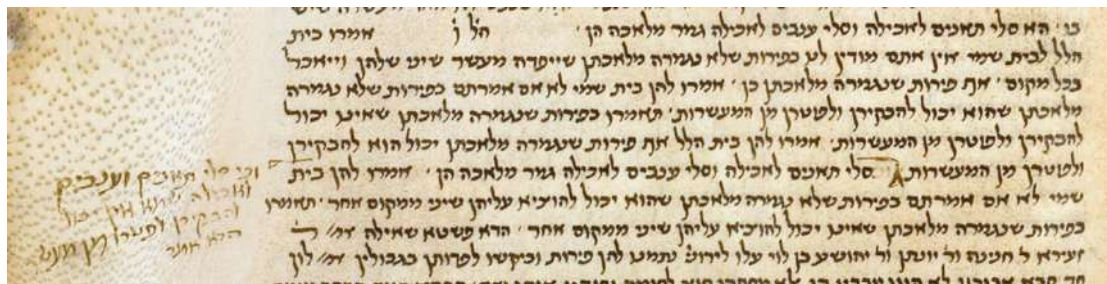 הא סלי תאנים לאכילה וסלי ענבים לאכילה גמר מלאכה הן ׳ הל׳ ו׳ אמרו בית
הלל לבית שמי אין אתם מודין לנו בפירות שלא נגמרה מלאכתן שייפדה מעשר שיני שלהן וייאכל
בכל מקום ׳ אף פירות שנגמרה מלאכתן כן ׳ אמרו להן בית שמי לא אם אמרתם בפירות שלא נגמרה
מלאכתן שהוא יכול להבקירן ולפוטרן מן המעשרות ׳ תאמרו בפירות שנגמרה מלאכתן שאינו יכול
להבקירן ולפוטרן מן המעשרות ׳ אמרו להן בית הלל אף פירות שנגמרה מלאכתן יכול הוא להבקירן
ולפוטרן מן המעשרות סלי תאנים לאכילה וסלי ענבים לאכילה גמר מלאכה הן ׳ אמרו להן בית
שמי לא אם אמרתם בפירות שלא נגמרה מלאכתן שהוא יכול להוציא עליהן שיני ממקום אחר ׳ תאמרו
בפירות שנגמרה מלאכתן שאינו יכול להוציא עליהן שיני ממקום אחר ׳ הדא פשטא שאילה דמ׳ ר׳
זעירא ר׳ חנינה ור׳ יונתן ור׳ יהושע בן לוי עלו לירוש׳ נתמנו להן פירות וביקשו לפדותן בגבולין אמ׳ לון
וכי סלי תאנים וענבים
לאכילה שמא אין יכול
להבקירן ולפטרן מן מעש׳
הדא אמר